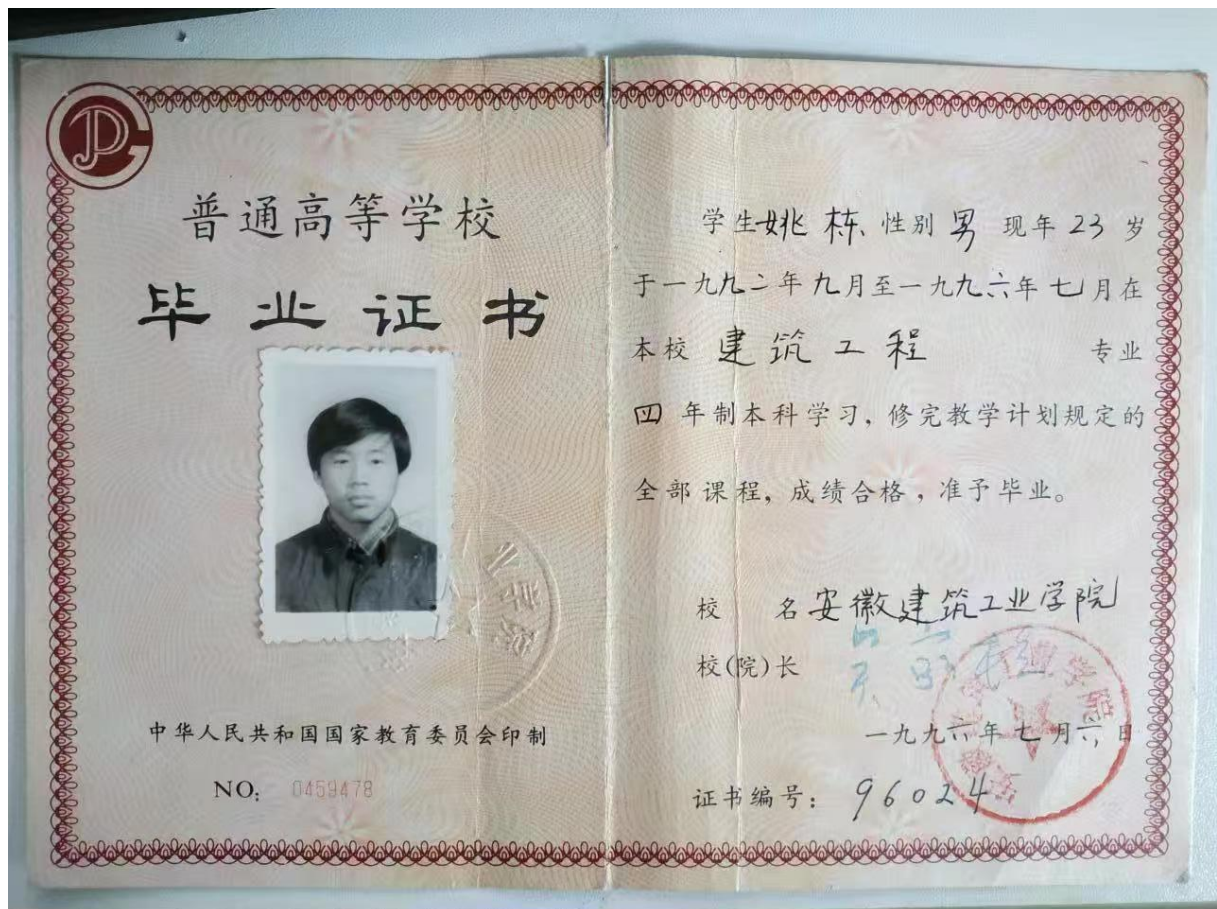 普通高等学校
毕业证书
中华人民共和国国家教育委员会印制
NO: 0459478
学生姚栋 性别 男 现年 23 岁
于一九九二年九月至一九九六年七月在
本校 建筑工程 专业
四 年制本科学习, 修完教学计划规定的
全部课程, 成绩合格, 准予毕业。
校 名 安徽建筑工业学院
校(院)长
一九九六年七月六日
证书编号: 96024